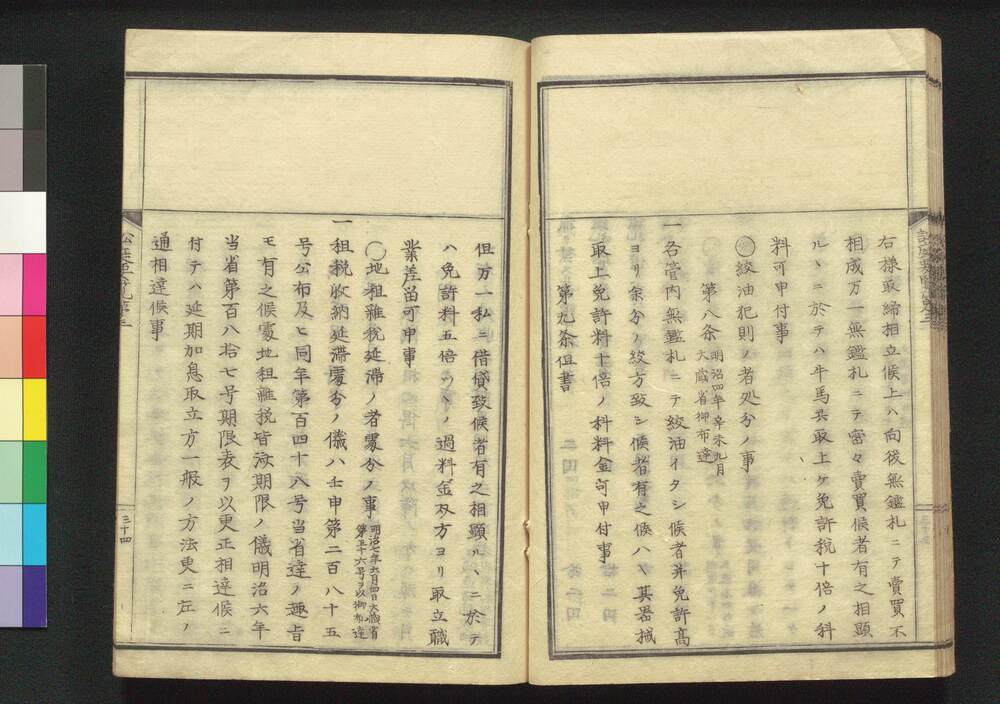 右様取締相立候上ハ向後無鑑札ニテ賣買不
相成万一無鑑札ニテ密々賣買候者有之相顕
ルヽニ於テハ牛馬共取上ケ免許税十倍ノ科
料可申付事
絞油犯則ノ者処分ノ事
第八条 明治四年辛未九月
大蔵省御布達
一各管内無鑑札ニテ絞油イタシ候者并免許髙
ヨリ余分ノ絞方致シ候者有之候ハヽ其器械
取上免許料十倍ノ科料金可申付事
第九条但書
但万一私ニ借貸致候者有之相顕ルヽニ於テ
ハ免許料五倍ツヽノ過料金双方ヨリ取立職
業差留可申事
〇地租雜税延滞ノ者處分ノ事 明治七年六月四日大蔵省
第五十六号ヲ以御布達
一租税収納延滞處分ノ儀ハ壬申第二百八十五
号公布及ヒ同年第百四十八号当省達ノ趣旨
モ有之候處地租雜税皆済期限ノ儀明治六年
当省第百八拾七号期限表ヲ以更正相達候ニ
付テハ延期加息取立方一般ノ方法更ニ左ノ
通相達候事
三十四